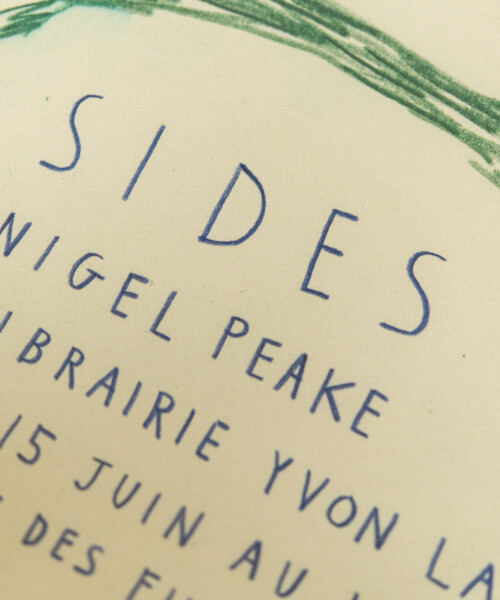 SIDES
NIGEL PEAKE
IBRAIRIE YVON LA
15 JUIN AU
DES